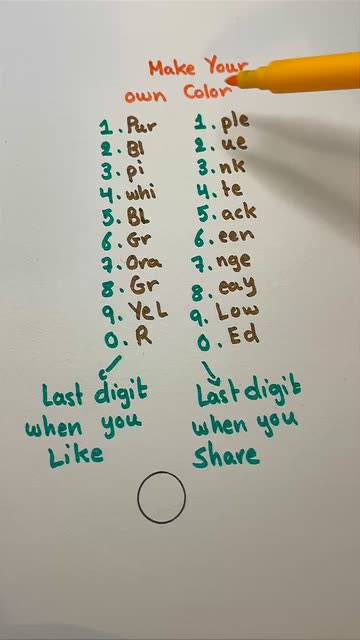 Make Your
own Color
1. Pur
2. Bl
3. pi
4. whi
5. BL
6. Gr
7. Ora
8. Gr
9. YeL
0. R
1. ple
2. ue
3. nk
4. te
5. ack
6. een
7. nge
8. eay
9. Low
0. Ed
Last digit
when you
Like
Last digit
when you
Share